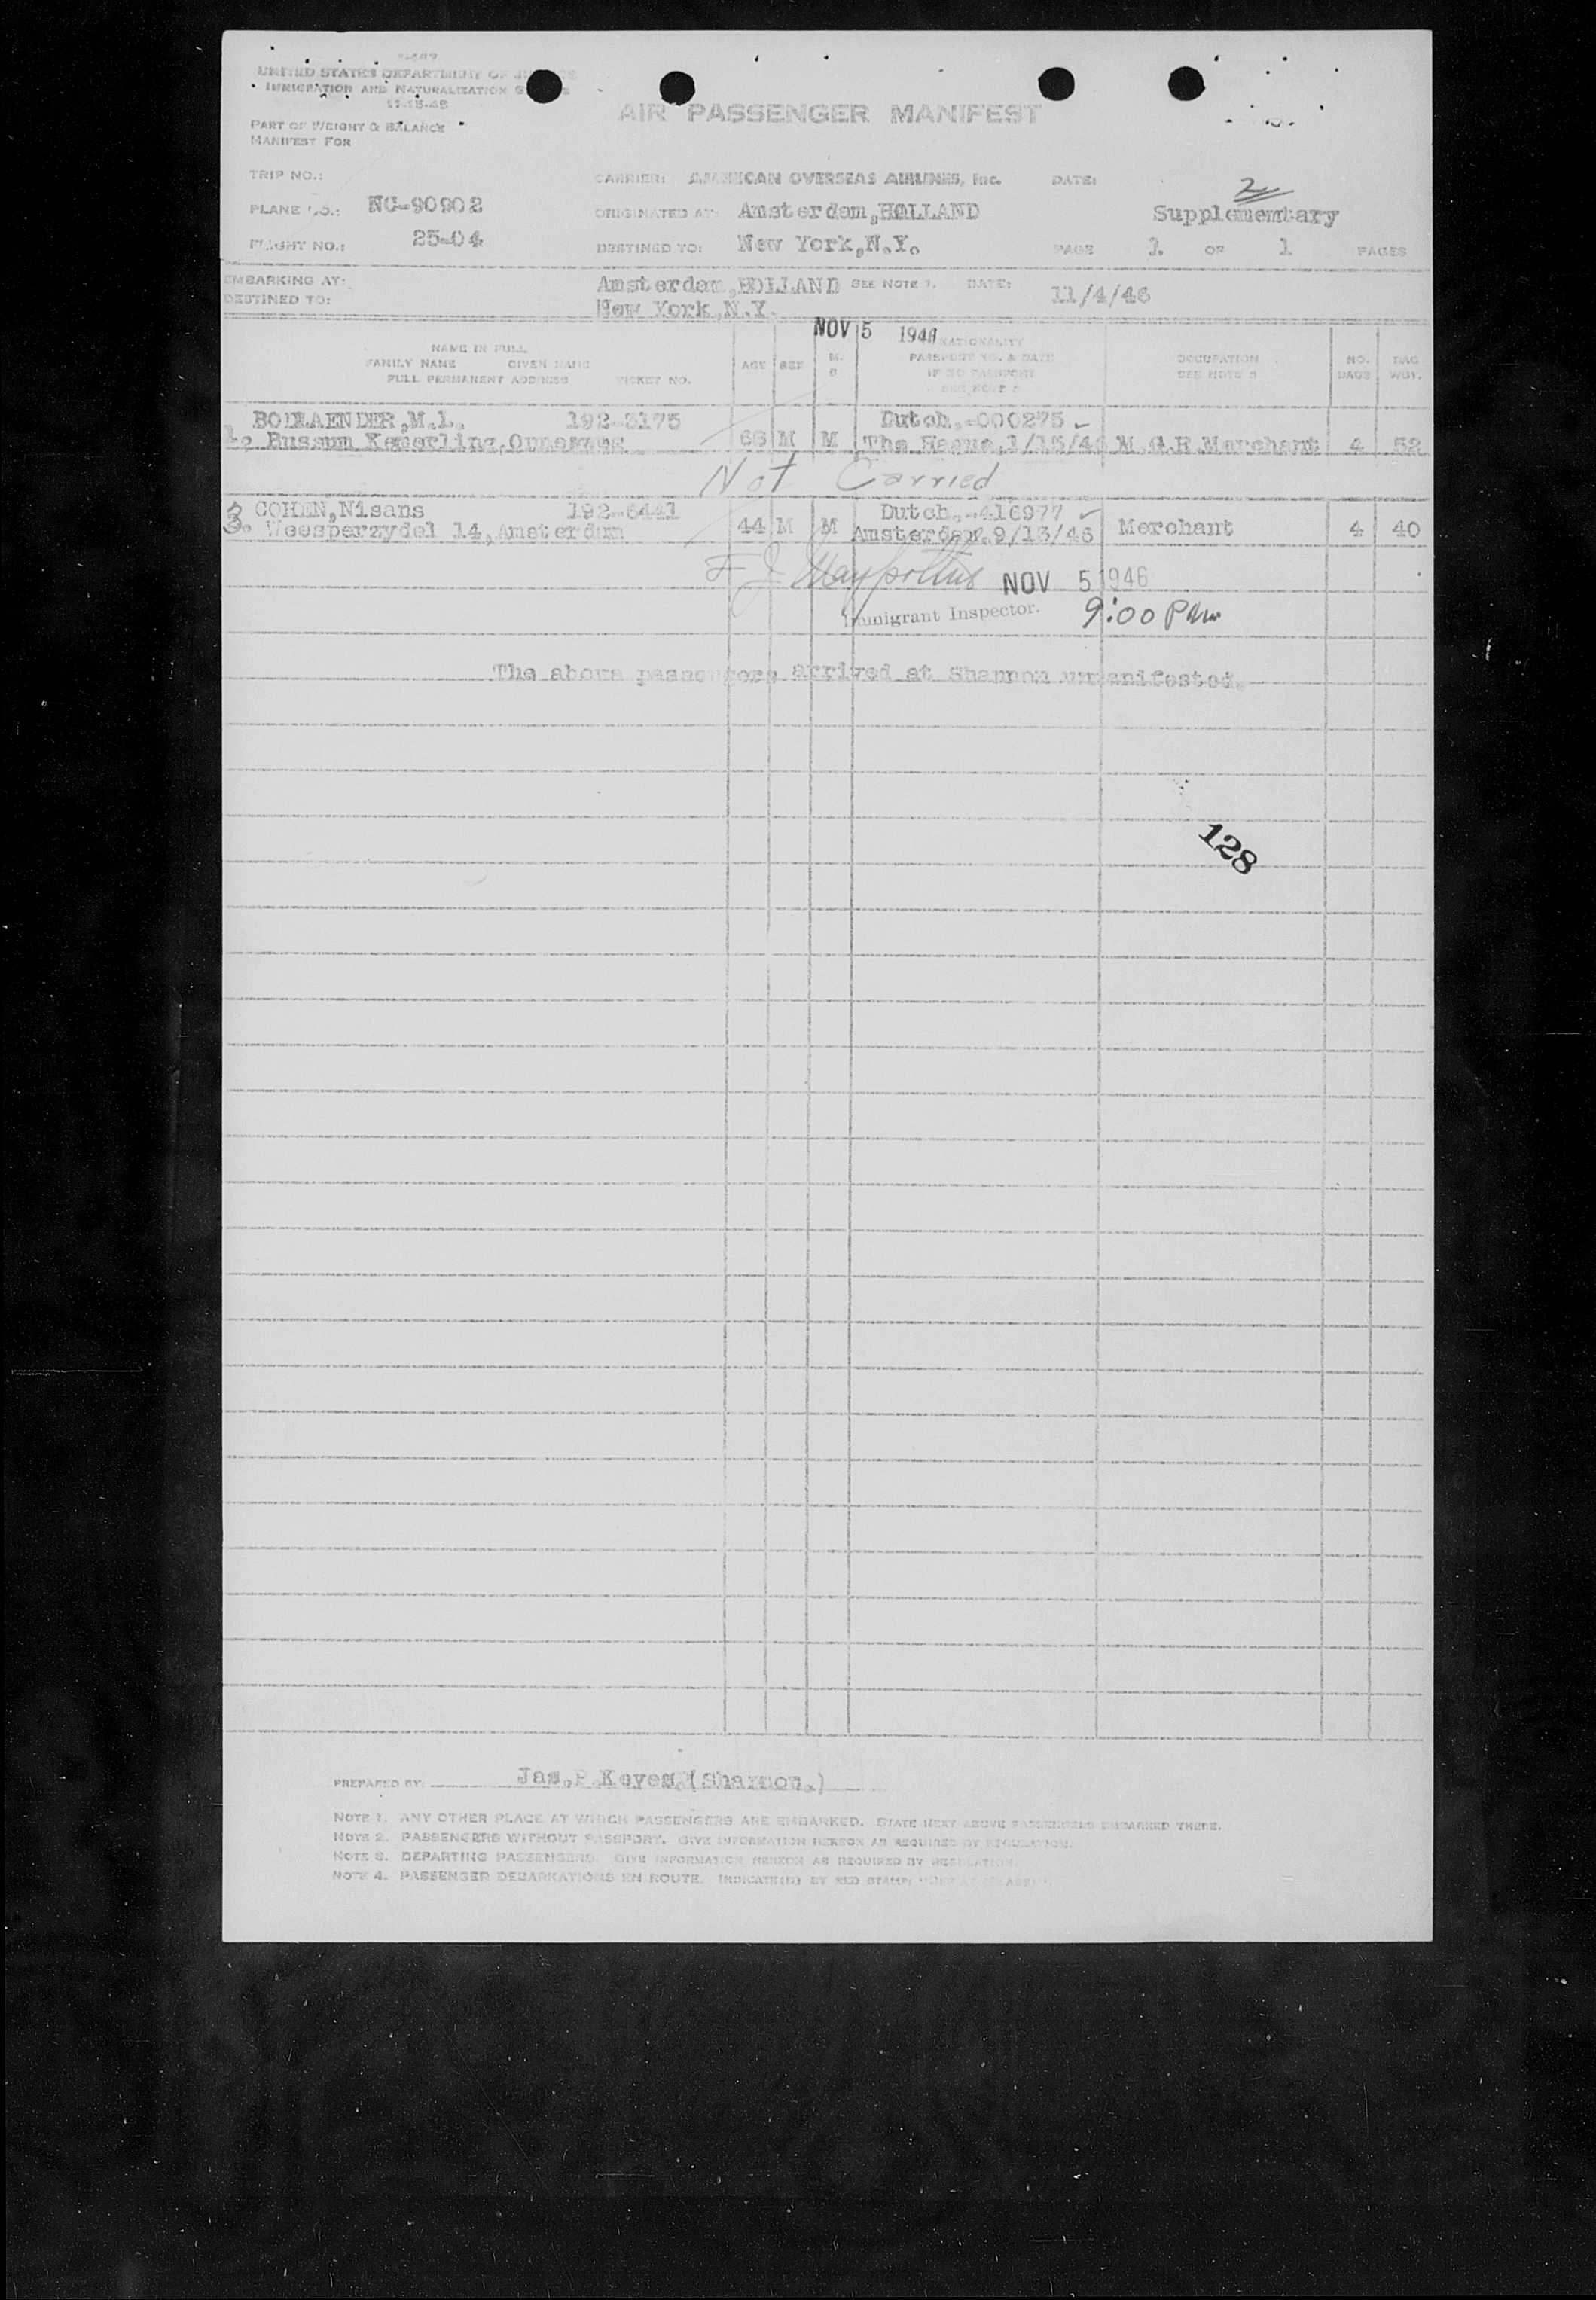 UNITED STATES DEPARTMENT OF
IMMIGRATION AND NATURALIZATION
AIR PASSENGER MANIFEST
PART OF WEIGHT & BALANCE
MANIFEST FOR
TRIP NO.: CARRIER: AMERICAN OVERSEAS AIRLINES, Inc. DATE: 2
PLANE NO.: NC-90902 ORIGINATED AT: Amsterdam,HOLLAND Supplementary
FLIGHT NO.: 25-04 DESTINED TO: New York,N.Y. PAGE 1. OF 1 PAGES
EMBARKING AT: Amsterdam,HOLLAND SEE NOTE 1. DATE: 11/4/46
DESTINED TO: New York,N.Y.
NOV 5 1946
NAME IN FULL
FAMILY NAME GIVEN NAME
FULL PERMANENT ADDRESS TICKET NO.
AGE SEX M. S NATIONALITY
PASSPORT NO. & DATE
IF NO PASSPORT
SEE NOTE 2
OCCUPATION
SEE NOTE 3
NO. BAGS
BAG WGT.
BODLAENDER,M.L. 192-3175 Dutch.-000275
1. Bussum 66 M M The Hague,1/15/46 Merchant 4 52
Not Carried
3 COHEN,Nisans 192-6441 Dutch.-416977
3. Weesperzydel 14,Amsterdam 44 M M Amsterdam.9/13/46 Merchant 4 40
F J NOV 5 1946
Immigrant Inspector. 9:00 PM
The above passengers arrived at Shannon unmanifested.
128
PREPARED BY: Jas.P.Keyes.(Shannon.)
NOTE 1. ANY OTHER PLACE AT WHICH PASSENGERS ARE EMBARKED. STATE NEXT ABOVE PASSENGERS EMBARKED THERE.
NOTE 2. PASSENGERS WITHOUT PASSPORT. GIVE INFORMATION HEREON AS REQUIRED BY REGULATION.
NOTE 3. DEPARTING PASSENGERS. GIVE INFORMATION HEREON AS REQUIRED BY REGULATION.
NOTE 4. PASSENGER DEBARKATIONS EN ROUTE. INDICATE(D) BY RED STAMP